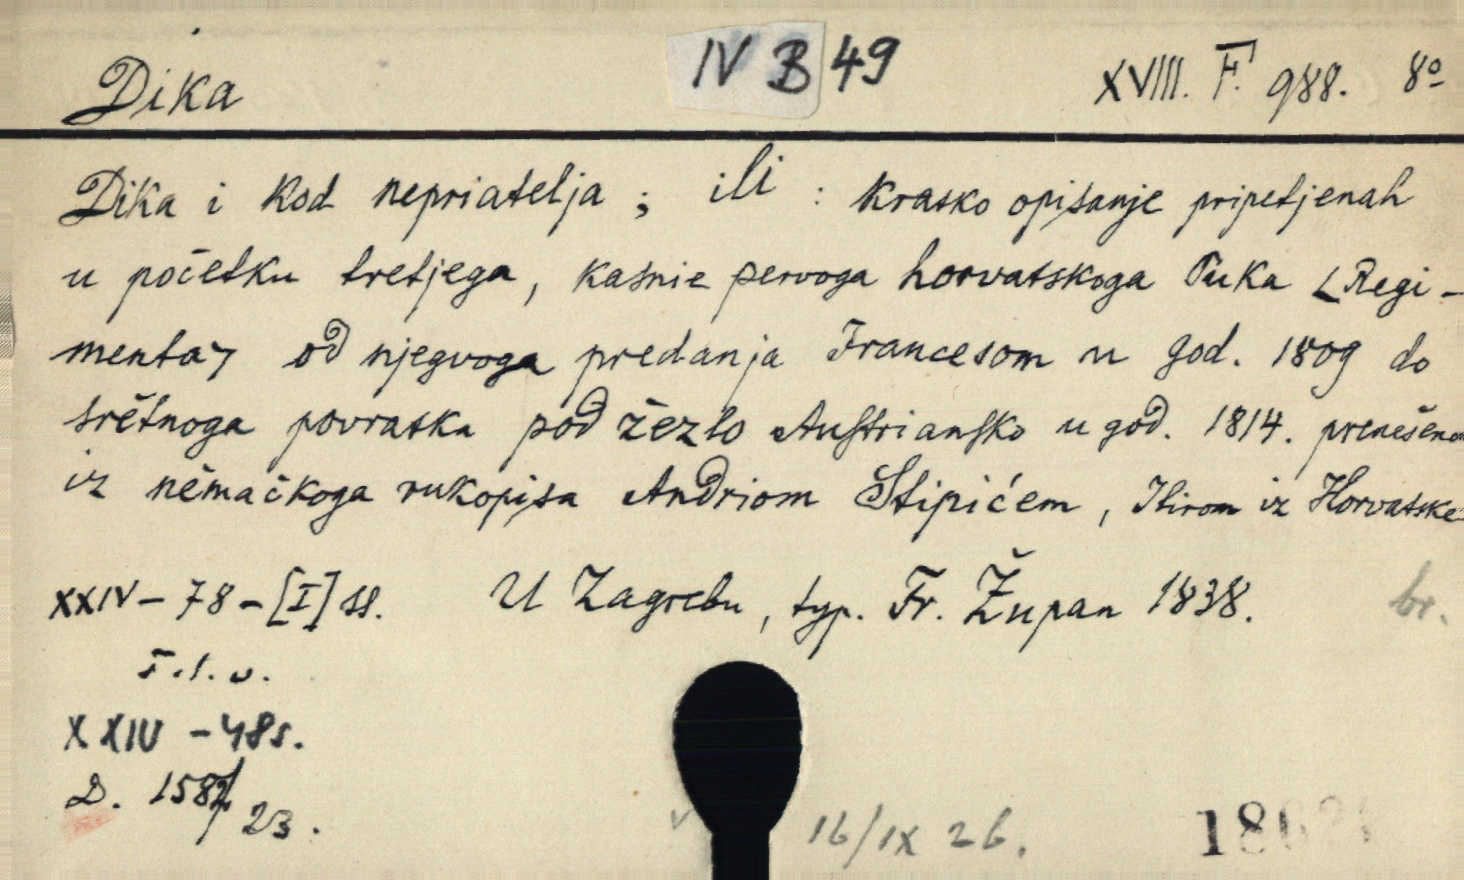 Dika IV B 49 XVIII. F. 988. 8º
Dika i kod nepriatelja; ili: Krasko opisanje pripetjenah
u početku tretjega, kasnie pervoga horvatskoga Puka [Regi-
menta] od njegvoga predanja Francesom u god. 1809 do
srětnoga povratka pod žezlo Austriansko u god. 1814. prenešeno
iz němačkoga rukopisa Andriom Stipićem, Ilirom iz Horvatske
XXIV-78-[I] ss. U Zagrebu, typ. Fr. Župan 1838. br.
XXIV-48s.
D. 23.
16/IX 26.